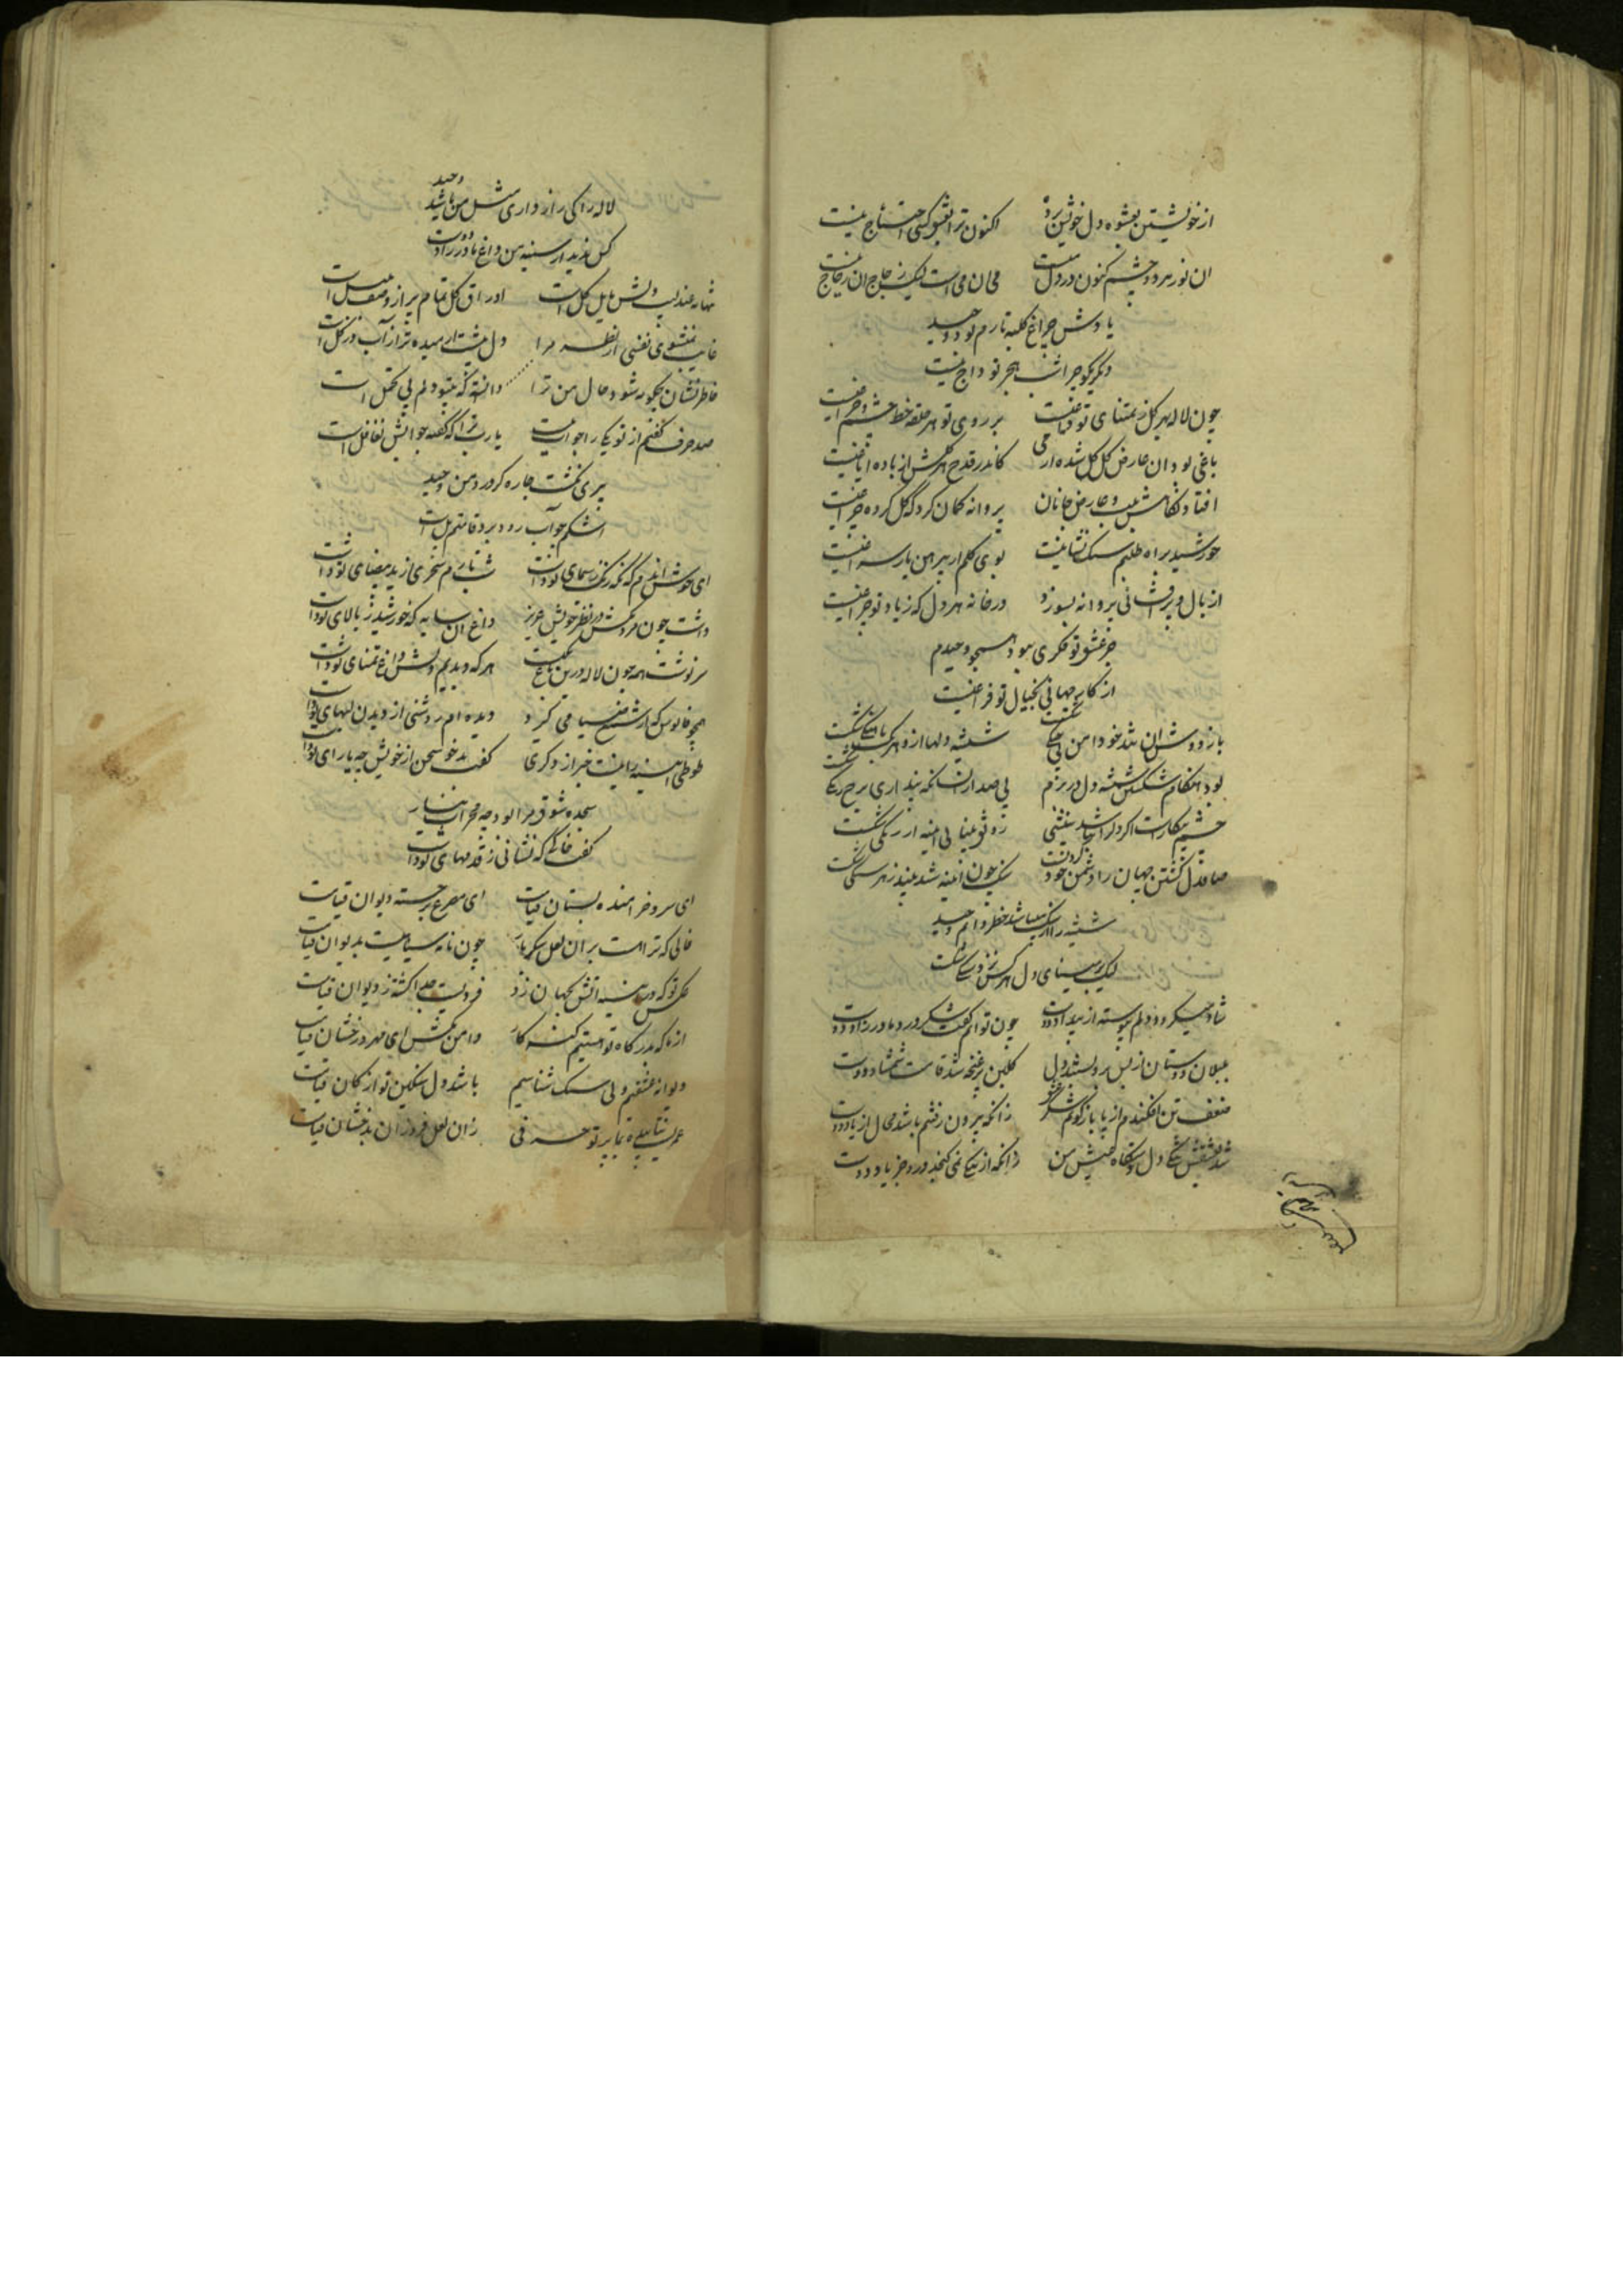 از خویشتن بعشوه دل خویش برده اکنون ترا بغیر کسی احتیاج نیست
ان نور هر دو چشم کنون در دل منست می ان می است لیک زجاج ان زجاج نیست
یادش چراغ کلبه تارم بود وحید
دیگر مگو چرا شب هجر تو داج نیست
چون لاله بهر گل ز تمنای تو داغیست بر روی تو هر حلقه خط چشم و چراغیست
باغی بود ان عارض گل گل شده از می کاندر قدح هر گلش از باده ایاغیست
افتاد نگاهش و عارض جانان پروانه گمان کرد که گل کرده چراغیست
خورشید براه طلبم سنک نشانیست بوی گلم از پیرهن یار سراغیست
از بال و پر افشانی پروانه بسوزد در خانه هر دل که ز یاد تو چراغیست
جز عشق تو فکری نبود همچو وحیدم
از کار جهانی بخیال تو فراغیست
باز دوش ان شد خود امن
شیشه دلها ازو
بود هنگام شکستن شیشه دل در بزم بی صدا
چشم بیکار است اکر دل را نباشد بینشی رو نمی بیند
صافدل گشتن جهان را دشمن خود کردنست سنک چون ائینه شد بیند ز هر سنگی شکست
شیشه را از سنک میباشد خطر دایم وحید
لیک بر مینای دل هرگز نزد سنگی شکست
شاد میگردد دلم پیوسته از بیداد دوست چون توانم گفت شکر درد مادرزاد دوست
بلبلان دوستان از بس برو بستند دل گلبن پر غنچه شد قامت شمشاد دوست
ضعف تن افکندم از پا باز گویم شکر عشق زانکه بیرون رفتنم باشد محال از یاد دوست
شد ز عشقش تنگ دل دستگاه عیش من زانکه از تنگی نمی گنجد درو جز یاد دوست
لاله را کی راز داری مثل من باشد وحید
گل ندید از سینه من داغ مادرزاد دوست
تنها نه عندلیب دلش مایل گل است اوراق گل تمام پر از وصف بلبل است
غایب نمیشوی نفسی از نظر مرا دل بیشتر رمیده تر از آب در گل است
خاطر نشان چگونه شود حال من ترا دانسته که بیتو دلم بی تحمل است
صد حرف گفتم از تو یکی را جواب نیست یا رب ترا که گفته جوابش تغافل است
پیری نگشت چاره گر درد من وحید
اشکم چو آب رود بود قامتم پل است
ای خوش اندم که نگه رنک ز سیمای تو داشت شب تارم سحری از ید بیضای تو داشت
داشت چون مردمکش در نظر خویش عزیز داغ ان سایه که خورشید ز بالای تو داشت
سرنوشت همه چون لاله درین باغ یکیست هر که دیدیم دلش داغ تمنای تو داشت
همچو فانوس که از شمع ضیا می گیرد دیده ام روشنی از دیدن لبهای تو داشت
طوطی ائینه را نیست خبر از دگری گفت بد خو سخن از خویش چه پارای تو داشت
سجده شوق مرا بود چه محراب نیاز
کف خاکی که نشانی ز قدمهای تو داشت
ای سرو خرامنده بستان قیامت ای مصرع برجسته دیوان قیامت
خالی که ترا هست بر ان لعل شکر بار چون نامه سیاهیست بدیوان قیامت
عکس تو که در سینه اتش بجهان زد فردیست جدا گشته ز دیوان قیامت
از ما که بدرگاه تو هستیم گنه کار دامن مکش ای مهر درخشان قیامت
دیوانه عشقیم ولی سنک شناسیم باشد دل سنگین تو از کان قیامت
عمریست نتابیده بما پرتو حرفی زان لعل فروزان بدخشان قیامت